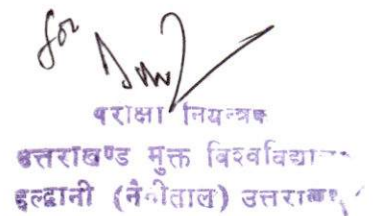 for
परीक्षा नियन्त्रक
उत्तराखण्ड मुक्त विश्वविद्यालय
हल्द्वानी (नैनीताल) उत्तराखण्ड